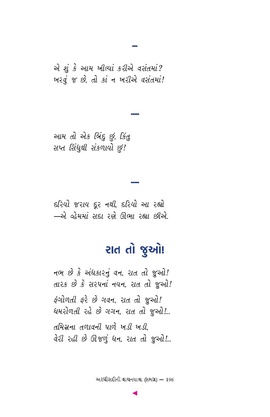 એ શું કે આમ ખીલ્યાં કરીએ વસંતમાં?
ખરવું જ છે, તો કાં ન ખરીએ વસંતમાં!
આમ તો એક બિંદુ છું, કિંતુ
સપ્ત સિંધુથી સંકળાયો છું!
દરિયો જરાય દૂર નથી, દરિયો આ રહ્યો
—એ વ્હેમમાં સદા રણે ઊભા રહ્યા છીએ.
રાત તો જુઓ!
નભ છે કે અંધકારનું વન, રાત તો જુઓ!
તારક છે કે સરપનાં નયન, રાત તો જુઓ!
ફંગોળતી ફરે છે ગવન, રાત તો જુઓ!
ઘમરોળતી રહે છે ગગન, રાત તો જુઓ!..
તમિસ્રના તળાવની પાળે ખડી ખડી,
વેરી રહી છે ઊજળું ધન, રાત તો જુઓ!..